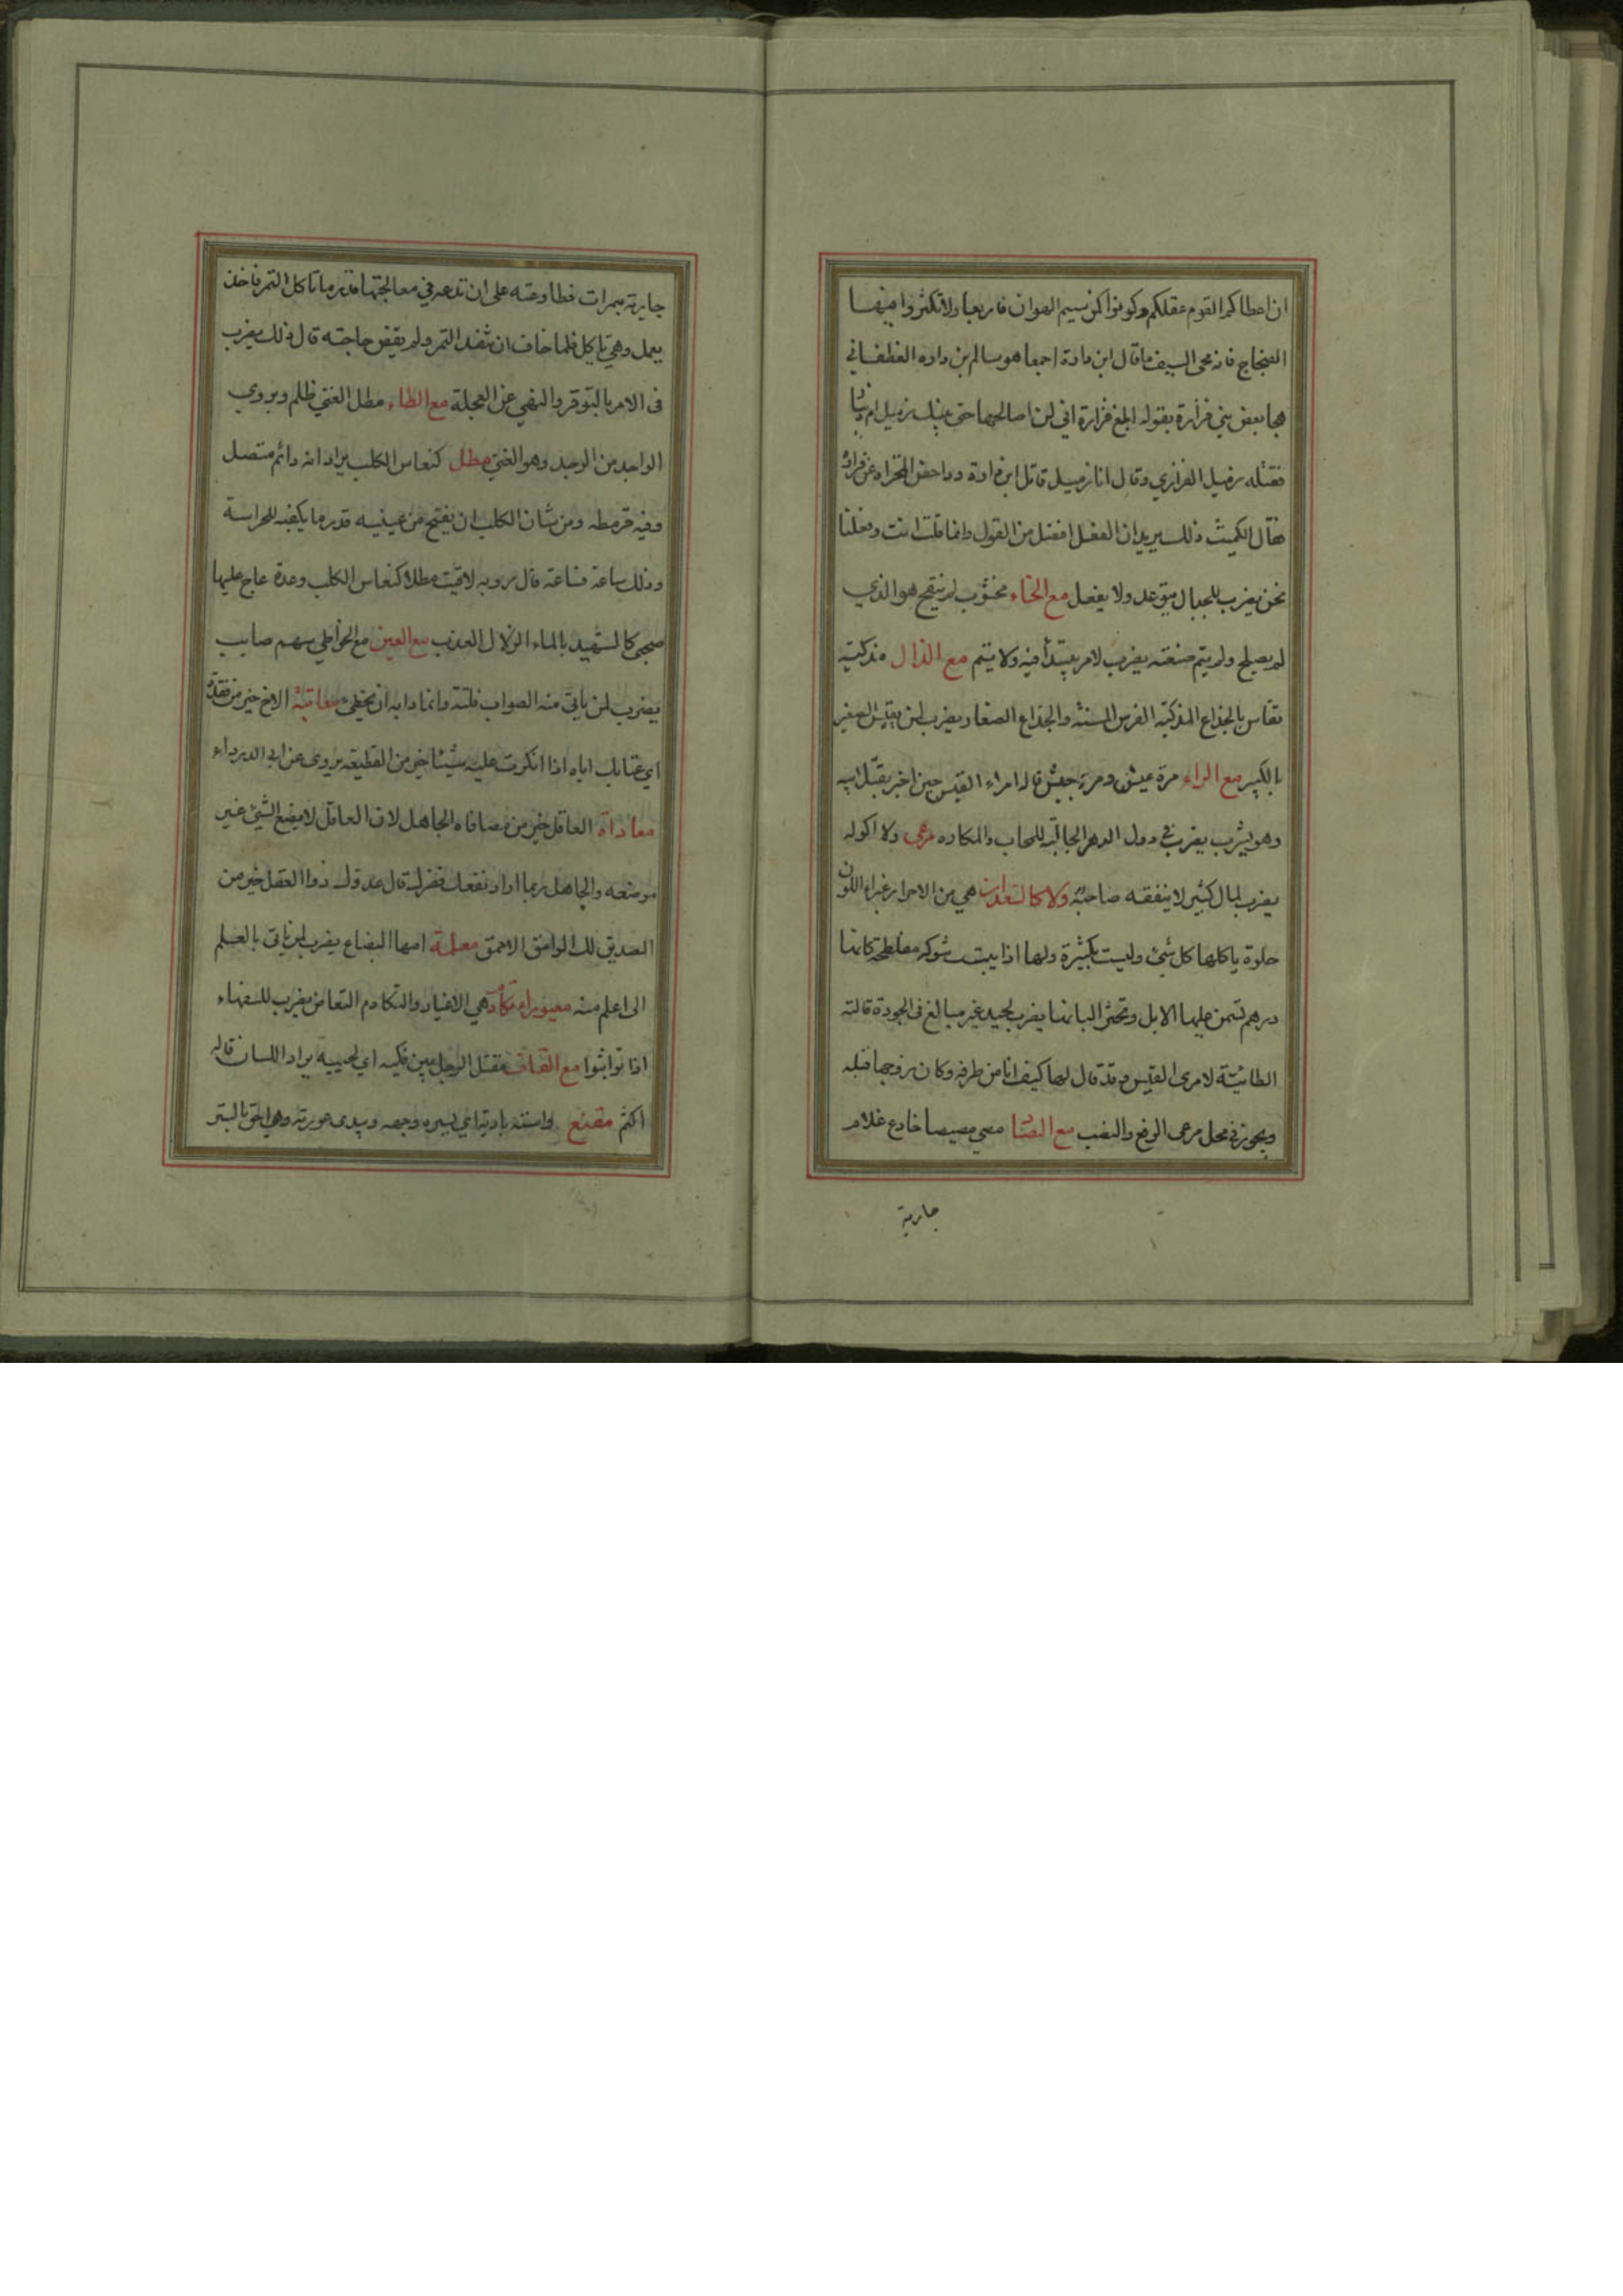 ان اعطاكم القوم عقلكم وكونوا كمن سيم الهوان فاربعا ولا تكثروا فيها
الضجاج فانه محى السيف ما قال ابن دارة اجمعا هو سالم بن داره الغطفاني
هجا بعض بني فزارة بقوله ابلغ فزارة اني لن اصالحها حتى ينيك زميل ام دينار
فقتله زميل الفزاري وقال انا زميل قاتل ابن دارة وداحض المخزاة عن فزارة
فقال الكميت ذلك يريد ان الفعل افضل من القول وانما قلت انت وفعلنا
نحن يضرب للجبان يتوعد ولا يفعل مع الخاء مخشوب لم ينقح هو الذي
لم يصلح ولم يتم صنعته يضرب لامر يبتدأ فيه ولا يتم مع الذال مذكية
تقاس بالجذاع المذكية الفرس المسنة والجذاع الصغار ويضرب لمن يقيس الصغير
بالكبير مع الراء مرة عيش ومرة جيش قاله امراء القيس حين اخبر بقتل ابيه
وهو يشرب يضرب في دول الدهر الجالبة للمحاب والمكاره مرعى ولا اكولة
يضرب لمال كثير لا ينفقه صاحبه ولا كالسعدان هي من الاحرار غبراء اللون
حلوة ياكلها كل شئ وليست بكثيرة ولها اذا يبست شوكه مفلطحة كانها
درهم تسمن عليها الابل وتخثر البانها يضرب لجيد غير مبالغ في الجودة قالته
الطائية لامرئ القيس وقد قال لها كيف انا من طرفه وكان زوجها قبله
ويجوز في محل مرعى الرفع والنصب مع الصا مصي مصيصا خادع غلام
جارية
جارية بتمرات فطاوعته على ان تدعه في معالجتها قدر ما تاكل التمر فاخذ
يعمل وهي تاكل فلما خاف ان تنفد التمر ولم يقض حاجته قال ذلك يضرب
في الامر بالتوقر والنهي عن العجلة مع الطاء مطل الغني ظلم ويروي
الواجد من الوجد وهو الغنى مطل كنعاس الكلب يراد انه دائم متصل
وفيه قرمطه ومن شان الكلب ان يفتح من عينيه قدر ما يكفيه للحراسة
وذلك ساعة فساعة قال روبه لاقيت مطلا كنعاس الكلب وعدة عاج عليها
صحبي كالشهد بالماء الزلال العذب مع العين مع الخواطي سهم صايب
يضرب لمن ياتي منه الصواب فلتة وانما دابه ان يخطئ معاتبة الاخ خير من فقده
اي عتابك اياه اذا انكرت عليه شيئا خير من القطيعه يروى عن ابي الدرداء
معاداة العاقل خير من مصافاه الجاهل لان العاقل لا يضع الشئ غير
موضعه والجاهل ربما اراد نفعك فضرك قال عدوك ذوا العقل خير من
الصديق لك الوامق الاحمق معلمة امها البضاع يضرب لمن ياتي بالعلم
الى اعلم منه معيوراء تكادم هي الاعيار والتكادم التعاض يضرب للسفهاء
اذا تواثبوا مع القاف مقتل الرجل بين فكيه اي لحييه يراد اللسان قاله
اكثم مقنع واسته بادية اي يستره وجهه ويبدى عورته وهي احق بالستر